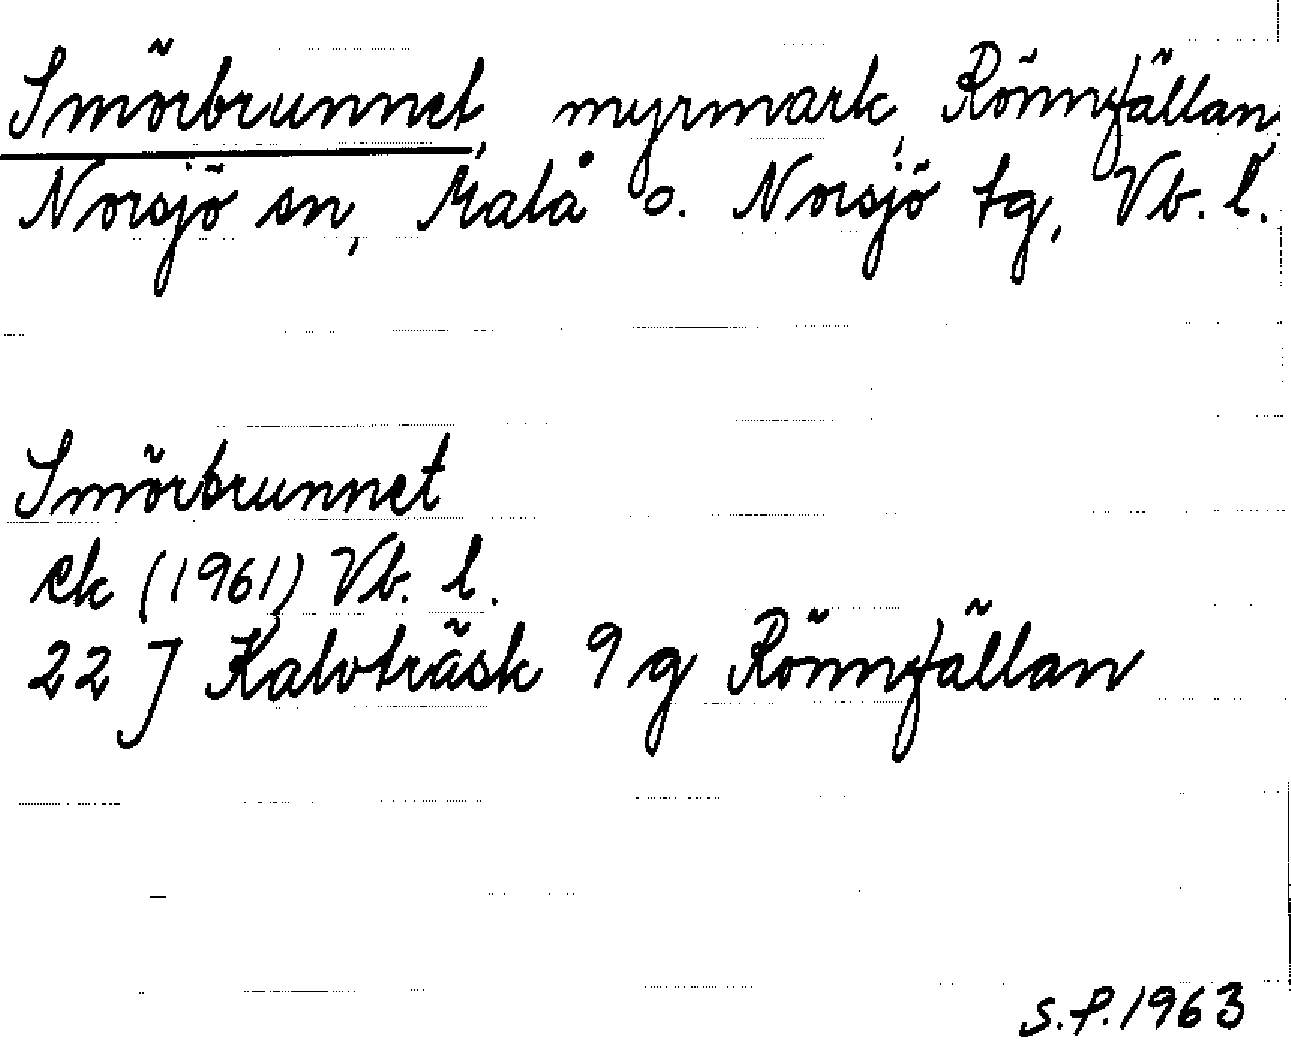 Smörbrunnet, myrmark, Rönnfällan,
Norsjö sn, Malå o. Norsjö tg, Vb. l.
Smörbrunnet
ek (1961) Vb. l.
22 J Kalvträsk 9 g Rönnfällan
S.P. 1963